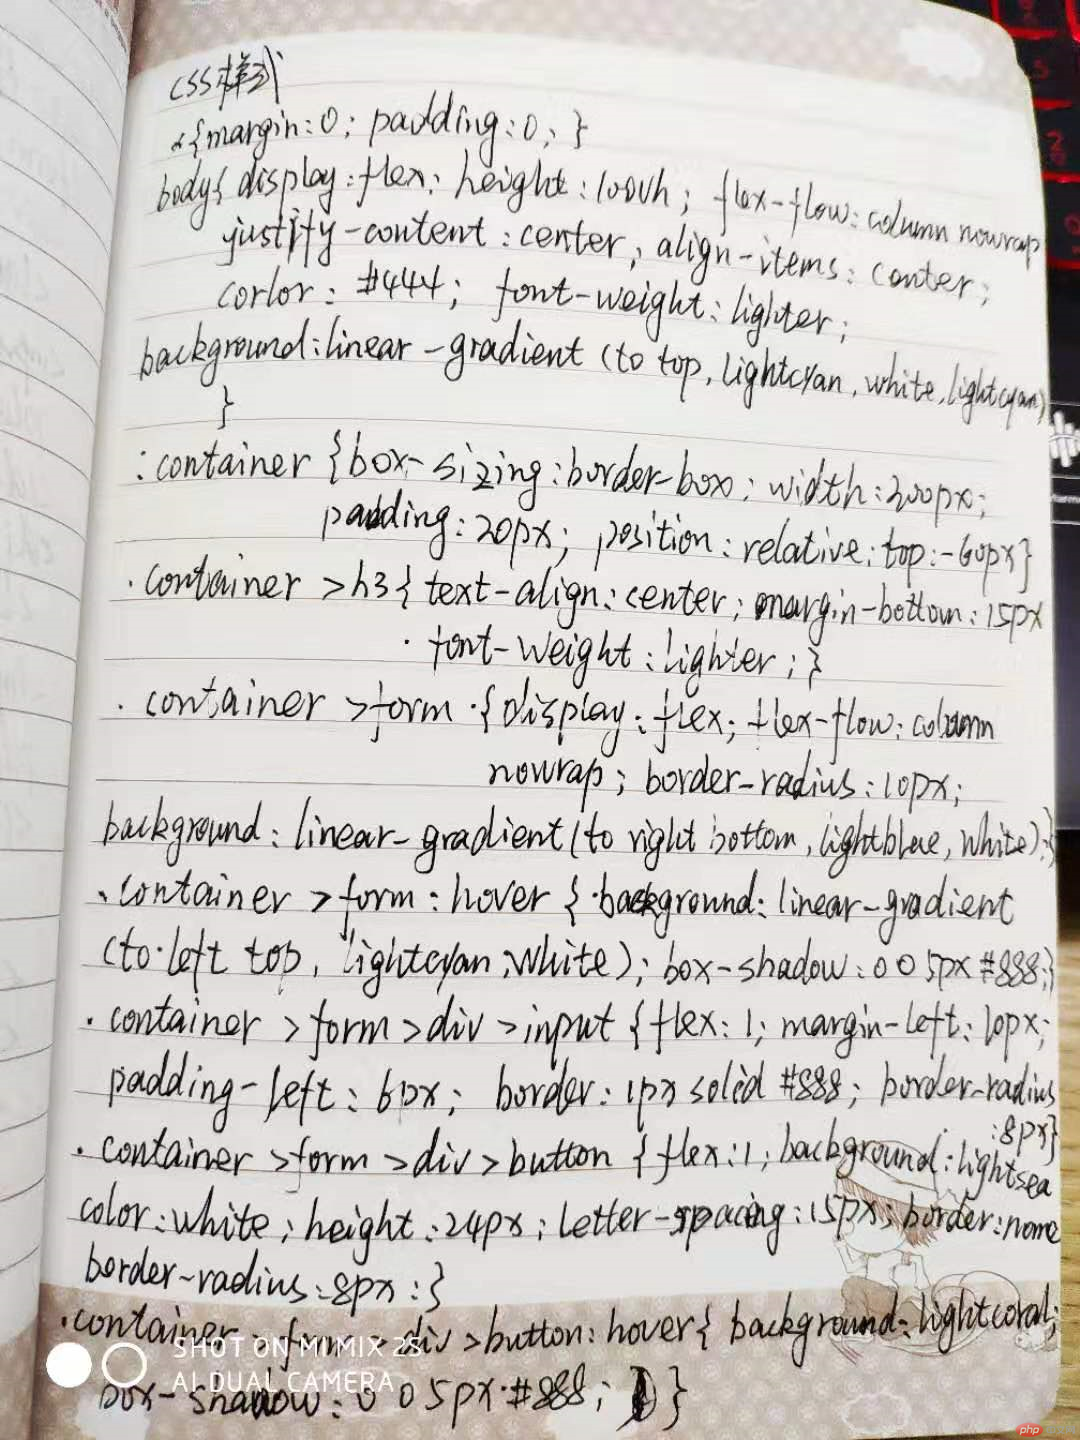 CSS样式
*{margin:0; padding:0; }
body{ display:flex; height:100vh; flex-flow:column nowrap
justify-content:center; align-items:center;
corlor: #444; font-weight:lighter;
background:linear-gradient (to top, lightcyan, white, lightcyan)
}
.container {box-sizing:border-box; width:200px;
padding:20px; position:relative; top:-60px}
.container >h3{ text-align:center; margin-bottom:15px
font-weight:lighter;}
.container >form {display:flex; flex-flow:column
nowrap; border-radius:10px;
background: linear-gradient(to right bottom, lightblue, white);}
.container >form:hover { background: linear-gradient
(to left top, lightcyan, white); box-shadow:0 0 5px #888;}
.container >form>div>input {flex:1; margin-left:10px;
padding-left:6px; border:1px solid #888; border-radius
:8px}
.container >form >div>button {flex:1; background:lightsea
color:white; height:24px; letter-spacing:15px; border:none
border-radius:8px;}
.container >form >div>button:hover{ background:lightcoral;
box-shadow:0 0 5px #888; }
SHOT ON MI MIX 2S
AI DUAL CAMERA
php